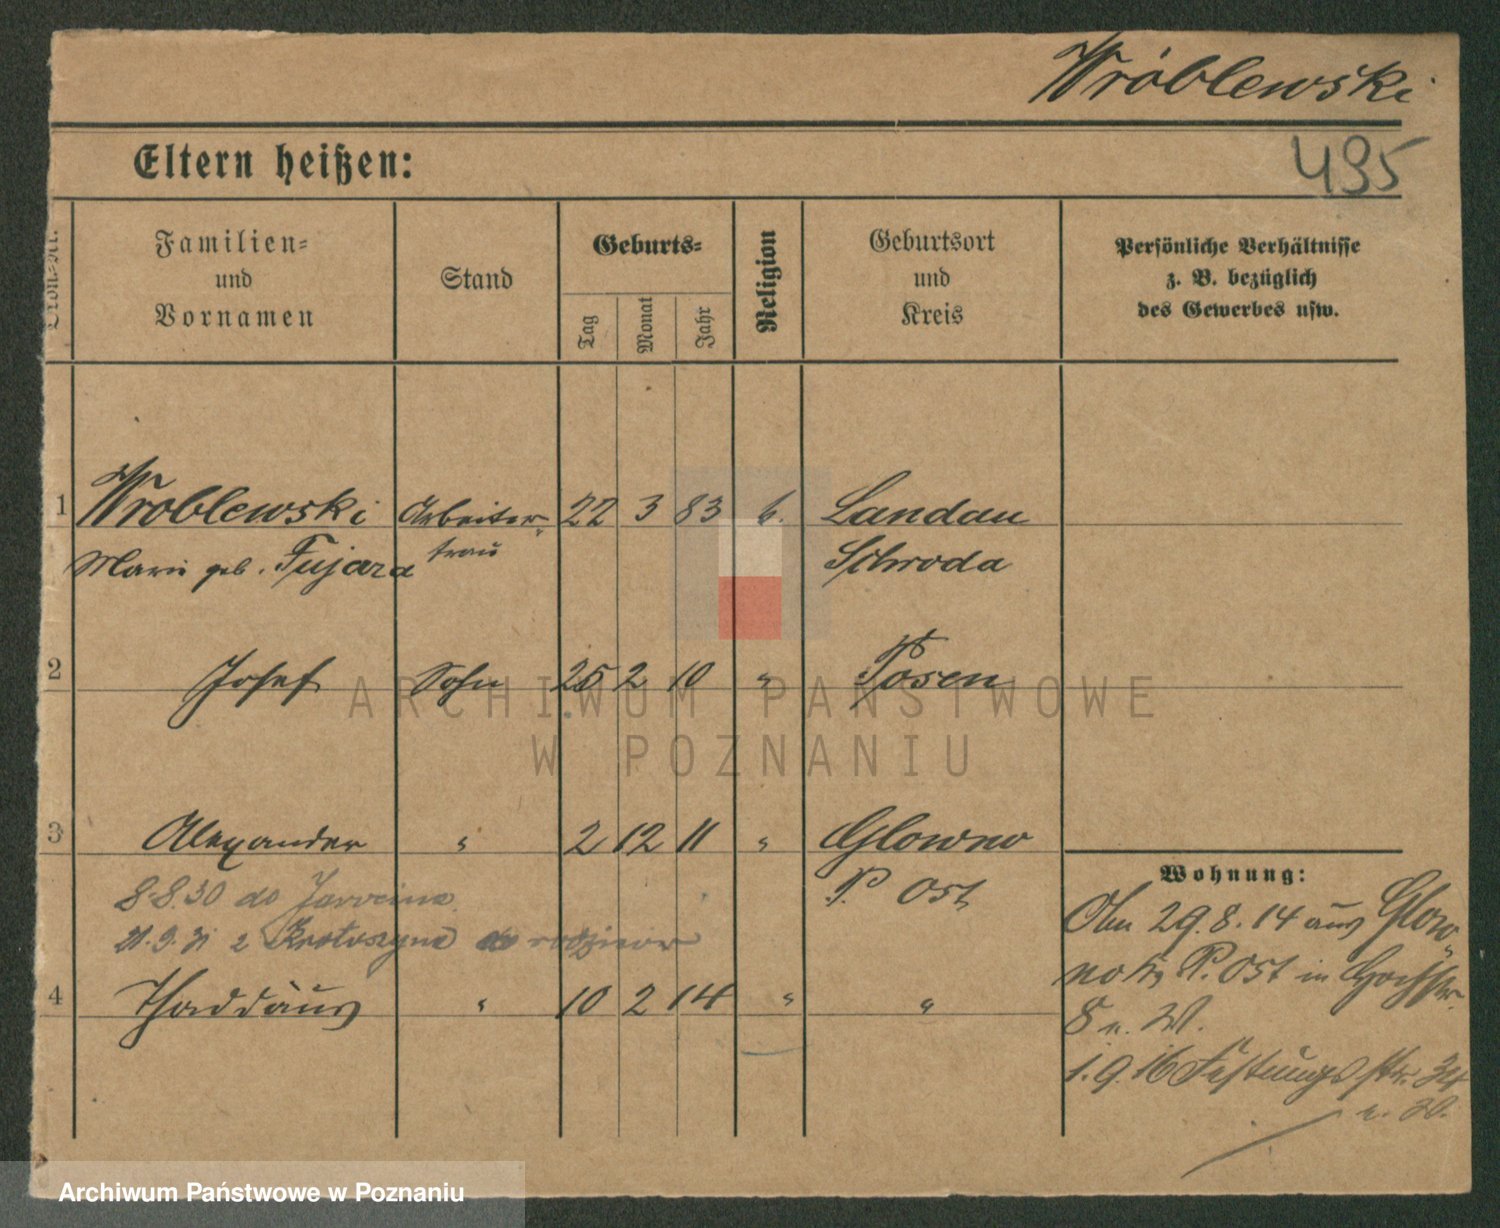 Wróblewski
Eltern heißen:
495
Familien=
und
Vornamen
Stand
Geburts=
Tag
Monat
Jahr
Religion
Geburtsort
und
Kreis
Persönliche Verhältnisse
z. B. bezüglich
des Gewerbes usw.
1 Wroblewski Arbeiter- 22 3 83 k. Landau
Marie geb. Fujara frau Schroda
2 Josef Sohn 25 2 10 " Posen
3 Alexander " 2 12 11 " Glowno
P. Ost
8.8.30 do Jarocina
21.9.31 z Krotoszyna do rodziców
4 Thaddäus " 10 2 14 " "
Wohnung:
29.8.14 aus Glow-
no P. Ost in
8 n. W.
1.9.16 Festungsstr. 34
ARCHIWUM PAŃSTWOWE
W POZNANIU
Archiwum Państwowe w Poznaniu